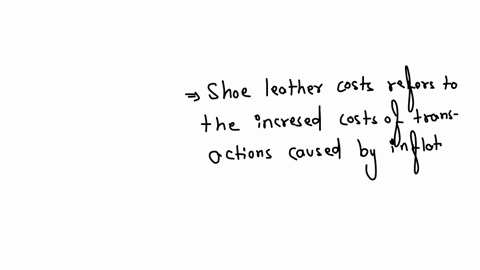 ⇒ Shoe leather costs refers to
the incresed costs of trans-
actions caused by inflat